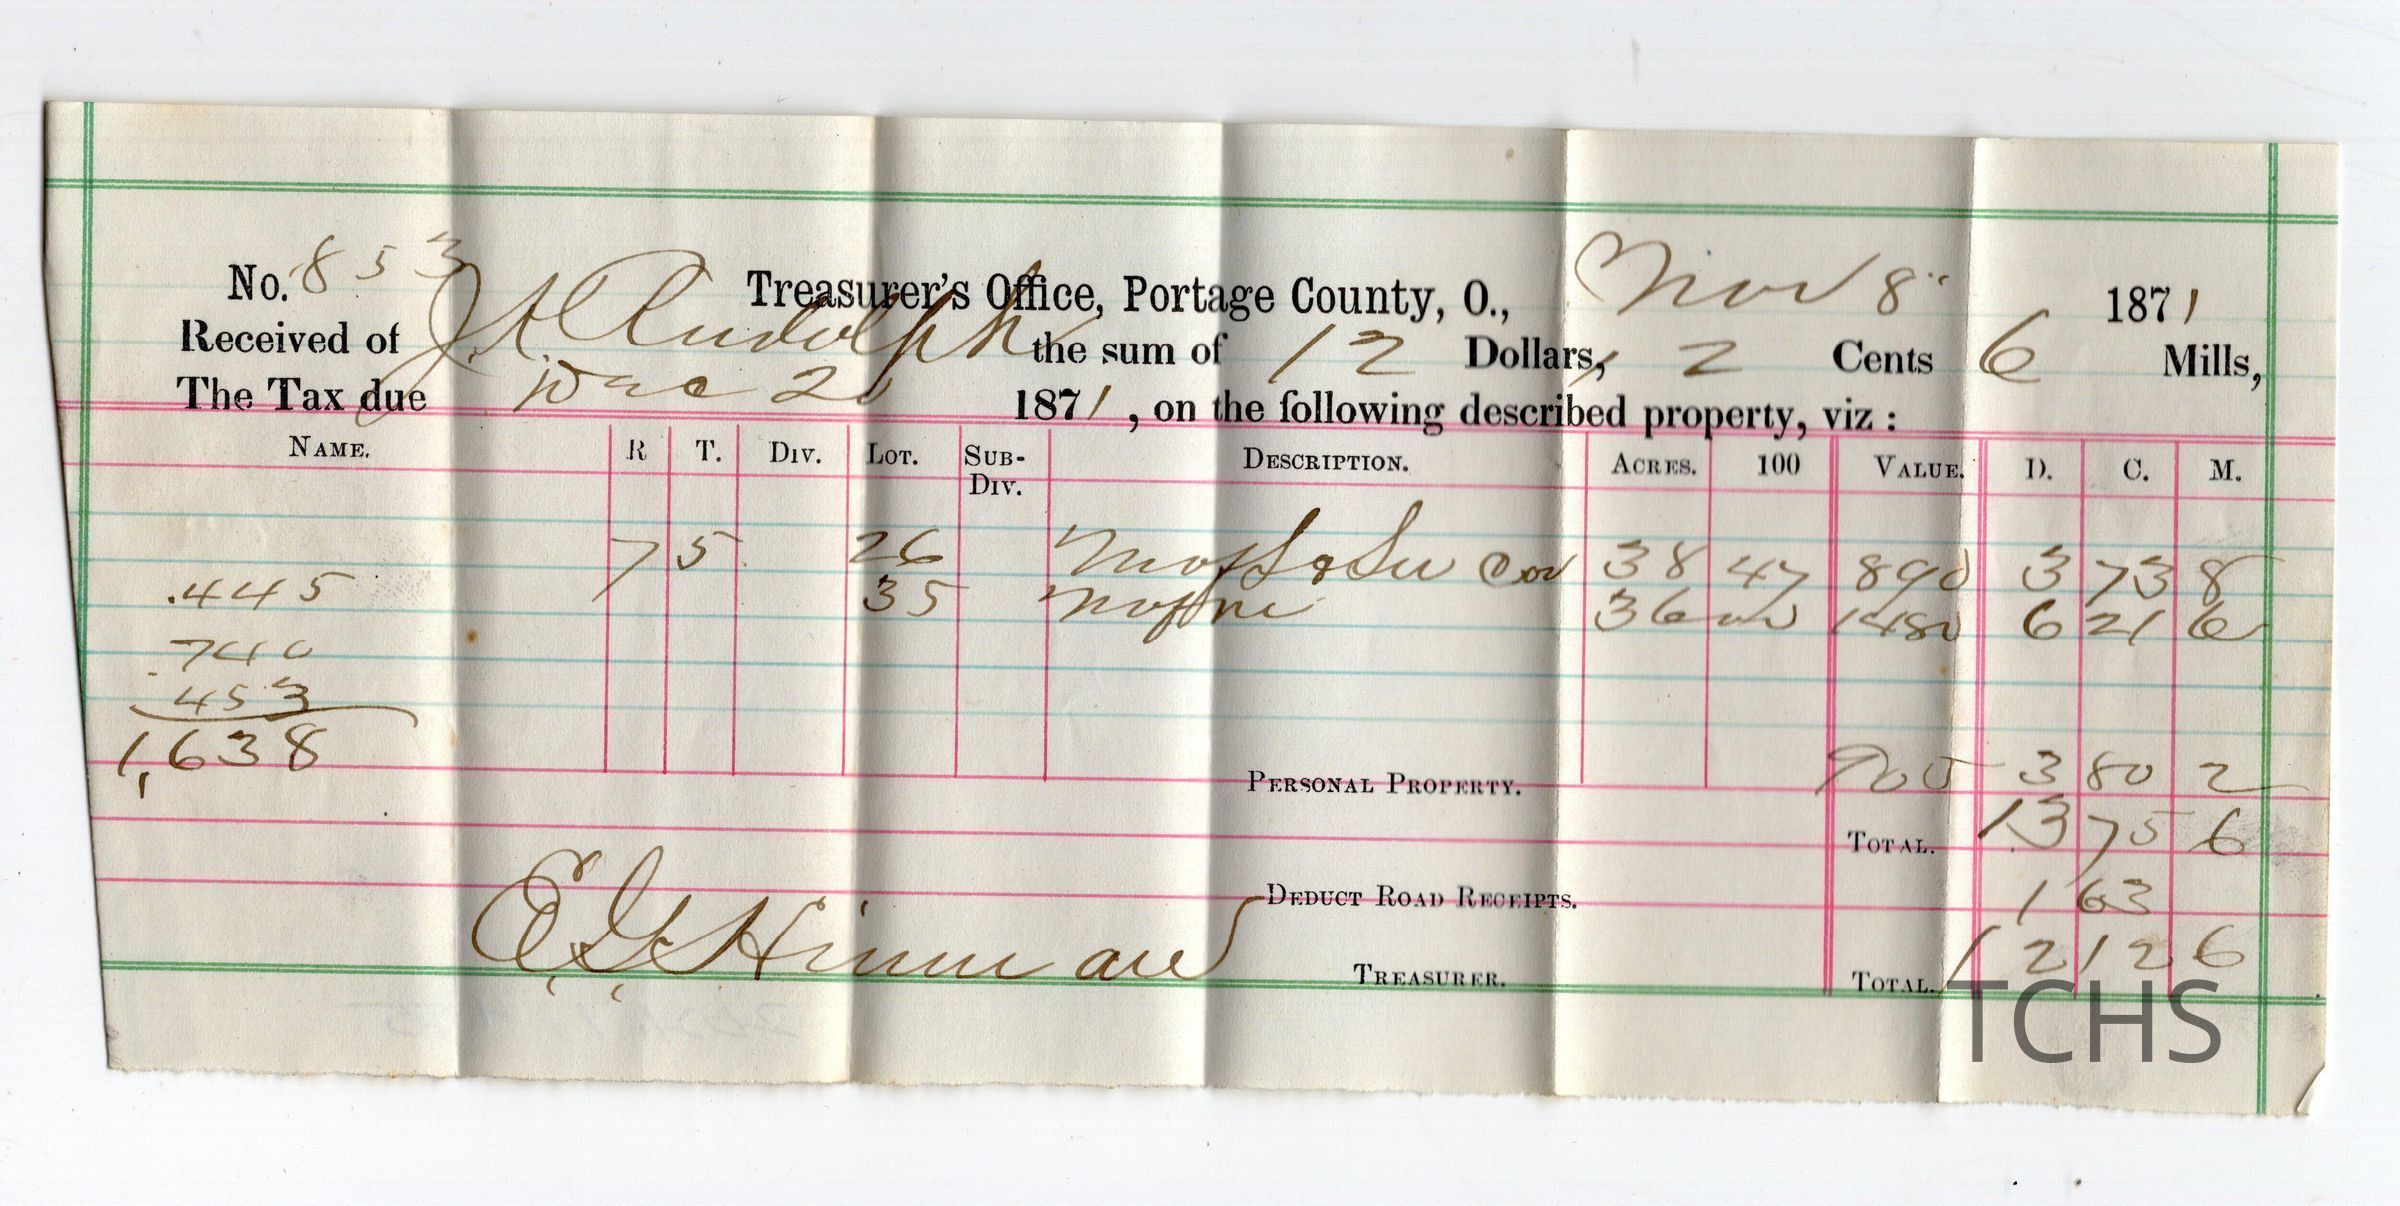 No. 853 Treasurer's Office, Portage County, O., Nov 8" 1871
Received of J. A. Rudolph the sum of 12 Dollars, 12 Cents 6 Mills,
The Tax due Dec 20 1871, on the following described property, viz:
NAME. R T. DIV. LOT. SUB-DIV. DESCRIPTION. ACRES. 100 VALUE. D. C. M.
7 5 26 Cor 38 47 890 3 73 8
.445 35 36 1480 6 21 6
740
453
1,638
PERSONAL PROPERTY. 905 3 80 2
TOTAL. 13 75 6
DEDUCT ROAD RECEIPTS. 1 63
E. G. Hinman TREASURER. TOTAL. 12 12 6
TCHS